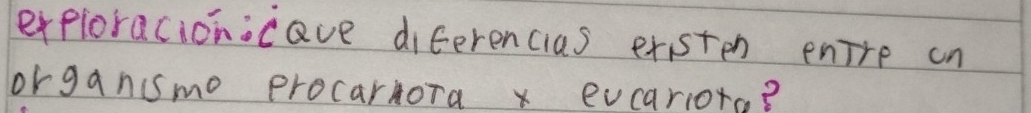 exploración: ¿Que diferencias existen entre un
organismo procariota y eucariota?